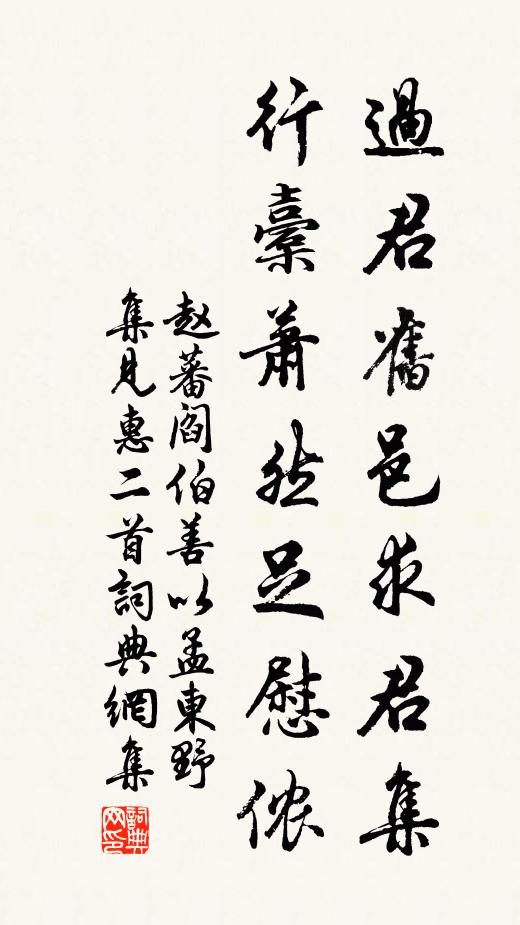 過君舊邑求君集
行橐蕭然足慰侬
赵蕃阎伯善以孟東野
集見惠二首詞典網集
詞典
网印